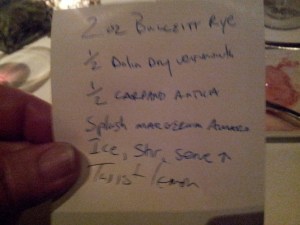 2 oz Bulleit Rye
1/2 Dolin Dry Vermouth
1/2 CARPANO ANTICA
Splash Amaro
Ice, Stir, Serve ↑
Twist lemon